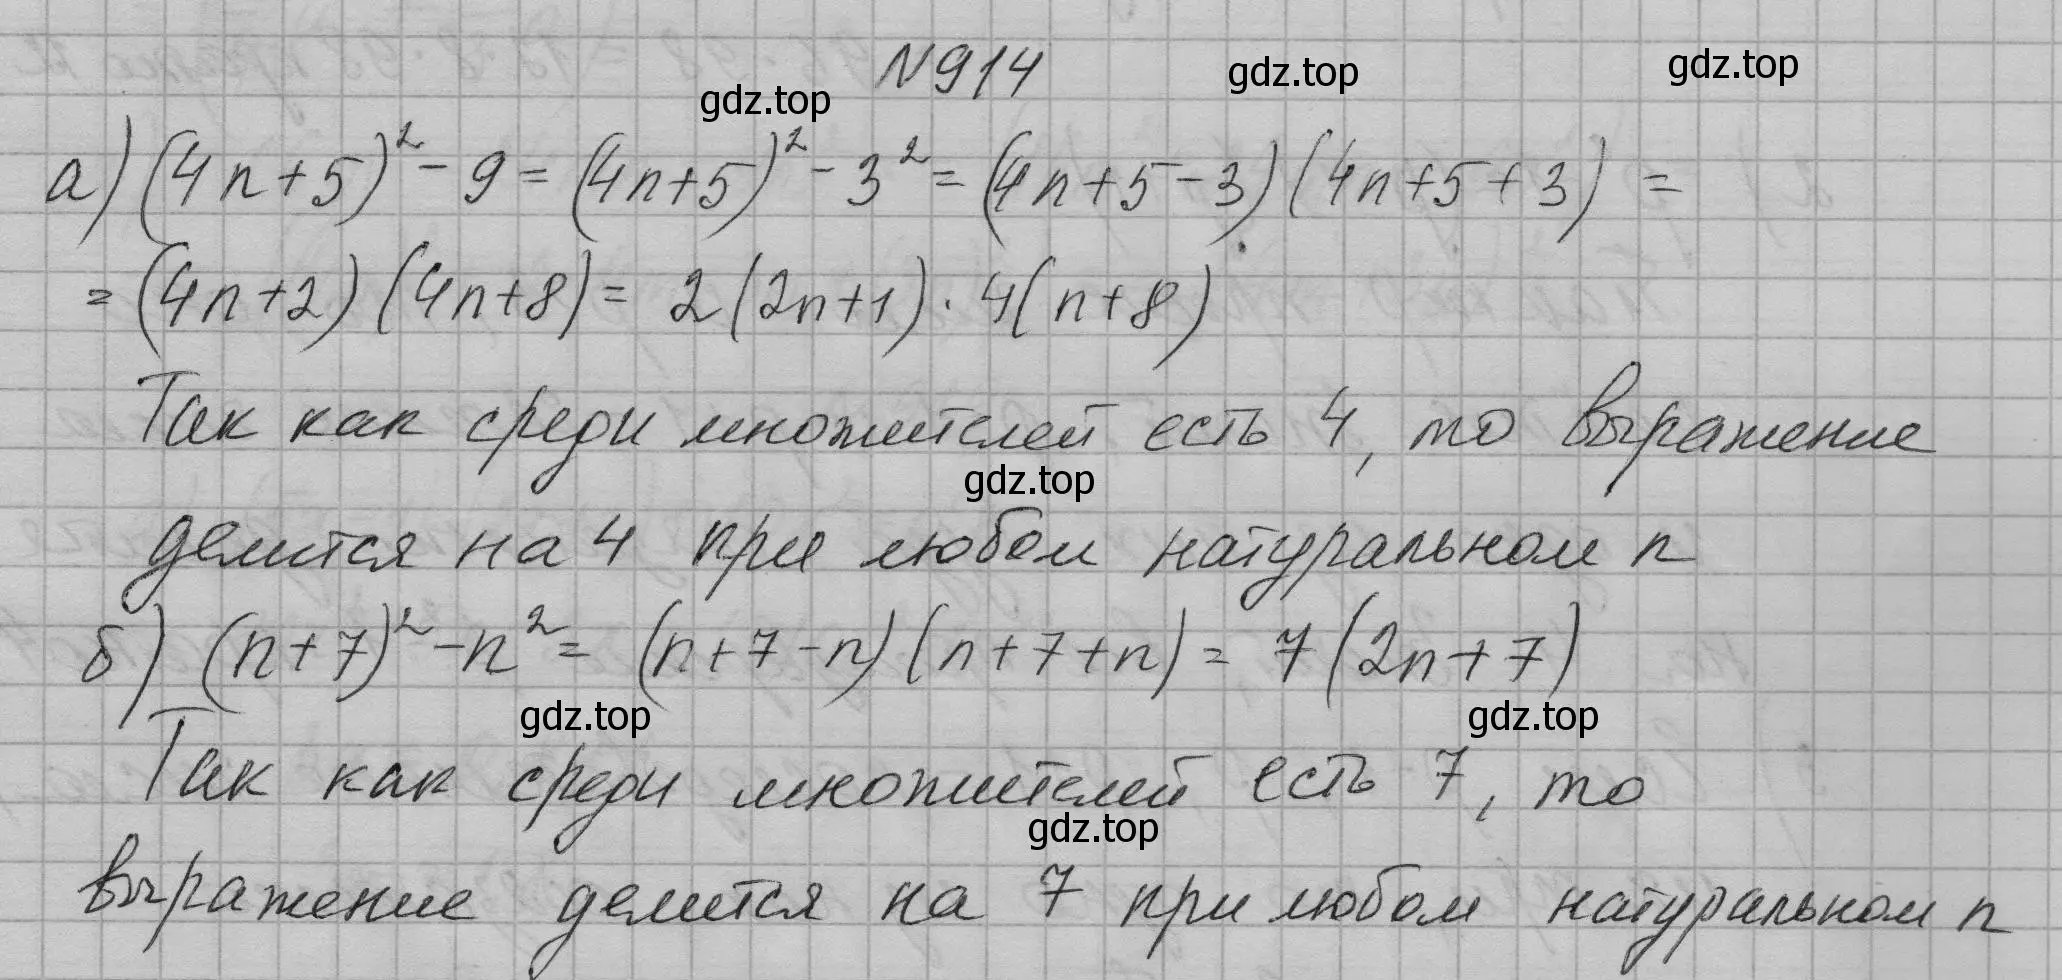 N914
gdz.top
gdz.top
gdz.top
а) (4n+5)² - 9 = (4n+5)² - 3² = (4n+5-3)(4n+5+3) =
= (4n+2)(4n+8) = 2(2n+1)·4(n+8)
Так как среди множителей есть 4, то выражение
gdz.top
делится на 4 при любом натуральном n
б) (n+7)² - n² = (n+7-n)(n+7+n) = 7(2n+7)
gdz.top
gdz.top
Так как среди множителей есть 7, то
gdz.top
выражение делится на 7 при любом натуральном n